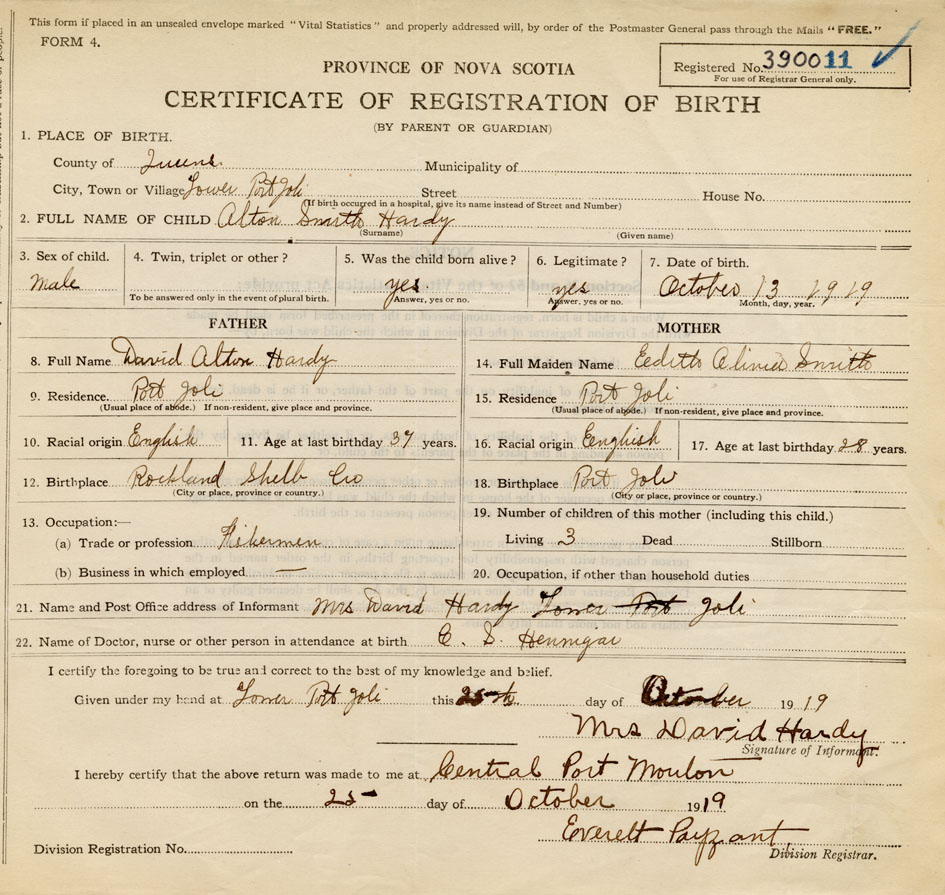 This form if placed in an unsealed envelope marked "Vital Statistics" and properly addressed will, by order of the Postmaster General pass through the Mails "FREE."
FORM 4.
Registered No. 390011
For use of Registrar General only.
PROVINCE OF NOVA SCOTIA
CERTIFICATE OF REGISTRATION OF BIRTH
(BY PARENT OR GUARDIAN)
1. PLACE OF BIRTH.
County of Queens Municipality of
City, Town or Village Lower Port Joli Street House No.
(If birth occurred in a hospital, give its name instead of Street and Number)
2. FULL NAME OF CHILD Alton Smith Hardy
(Surname) (Given name)
3. Sex of child. 4. Twin, triplet or other? 5. Was the child born alive? 6. Legitimate? 7. Date of birth.
Male yes yes October 13 1919
To be answered only in the event of plural birth. Answer, yes or no. Answer, yes or no. Month, day, year.
FATHER MOTHER
8. Full Name David Alton Hardy 14. Full Maiden Name Eedith Olivia Smith
9. Residence. Port Joli 15. Residence Port Joli
(Usual place of abode.) If non-resident, give place and province. (Usual place of abode.) If non-resident, give place and province.
10. Racial origin English 11. Age at last birthday 37 years. 16. Racial origin Eenghish 17. Age at last birthday 28 years.
12. Birthplace Rockland Shelb Co 18. Birthplace Port Joli
(City or place, province or country.) (City or place, province or country.)
13. Occupation:— 19. Number of children of this mother (including this child.)
(a) Trade or profession Fishermen Living 3 Dead Stillborn
(b) Business in which employed — 20. Occupation, if other than household duties
21. Name and Post Office address of Informant Mrs David Hardy Lower Port Joli
22. Name of Doctor, nurse or other person in attendance at birth C. S. Hennigar
I certify the foregoing to be true and correct to the best of my knowledge and belief.
Given under my hand at Lower Port Joli this 25th day of October 1919
Mrs David Hardy
Signature of Informant.
I hereby certify that the above return was made to me at Central Port Mouton
on the 25 day of October 1919
Everett Payzant
Division Registration No. Division Registrar.